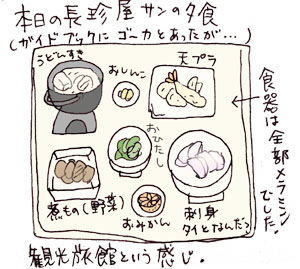 本日の長珍屋サンの夕食
(ガイドブックにゴーカとあったが…)
うどんすき
おしんこ
天プラ
おひたし
煮もの(野菜)
おみかん
刺身
タイとなんだっ
食器は全部メラミンでした。
観光旅館という感じ.